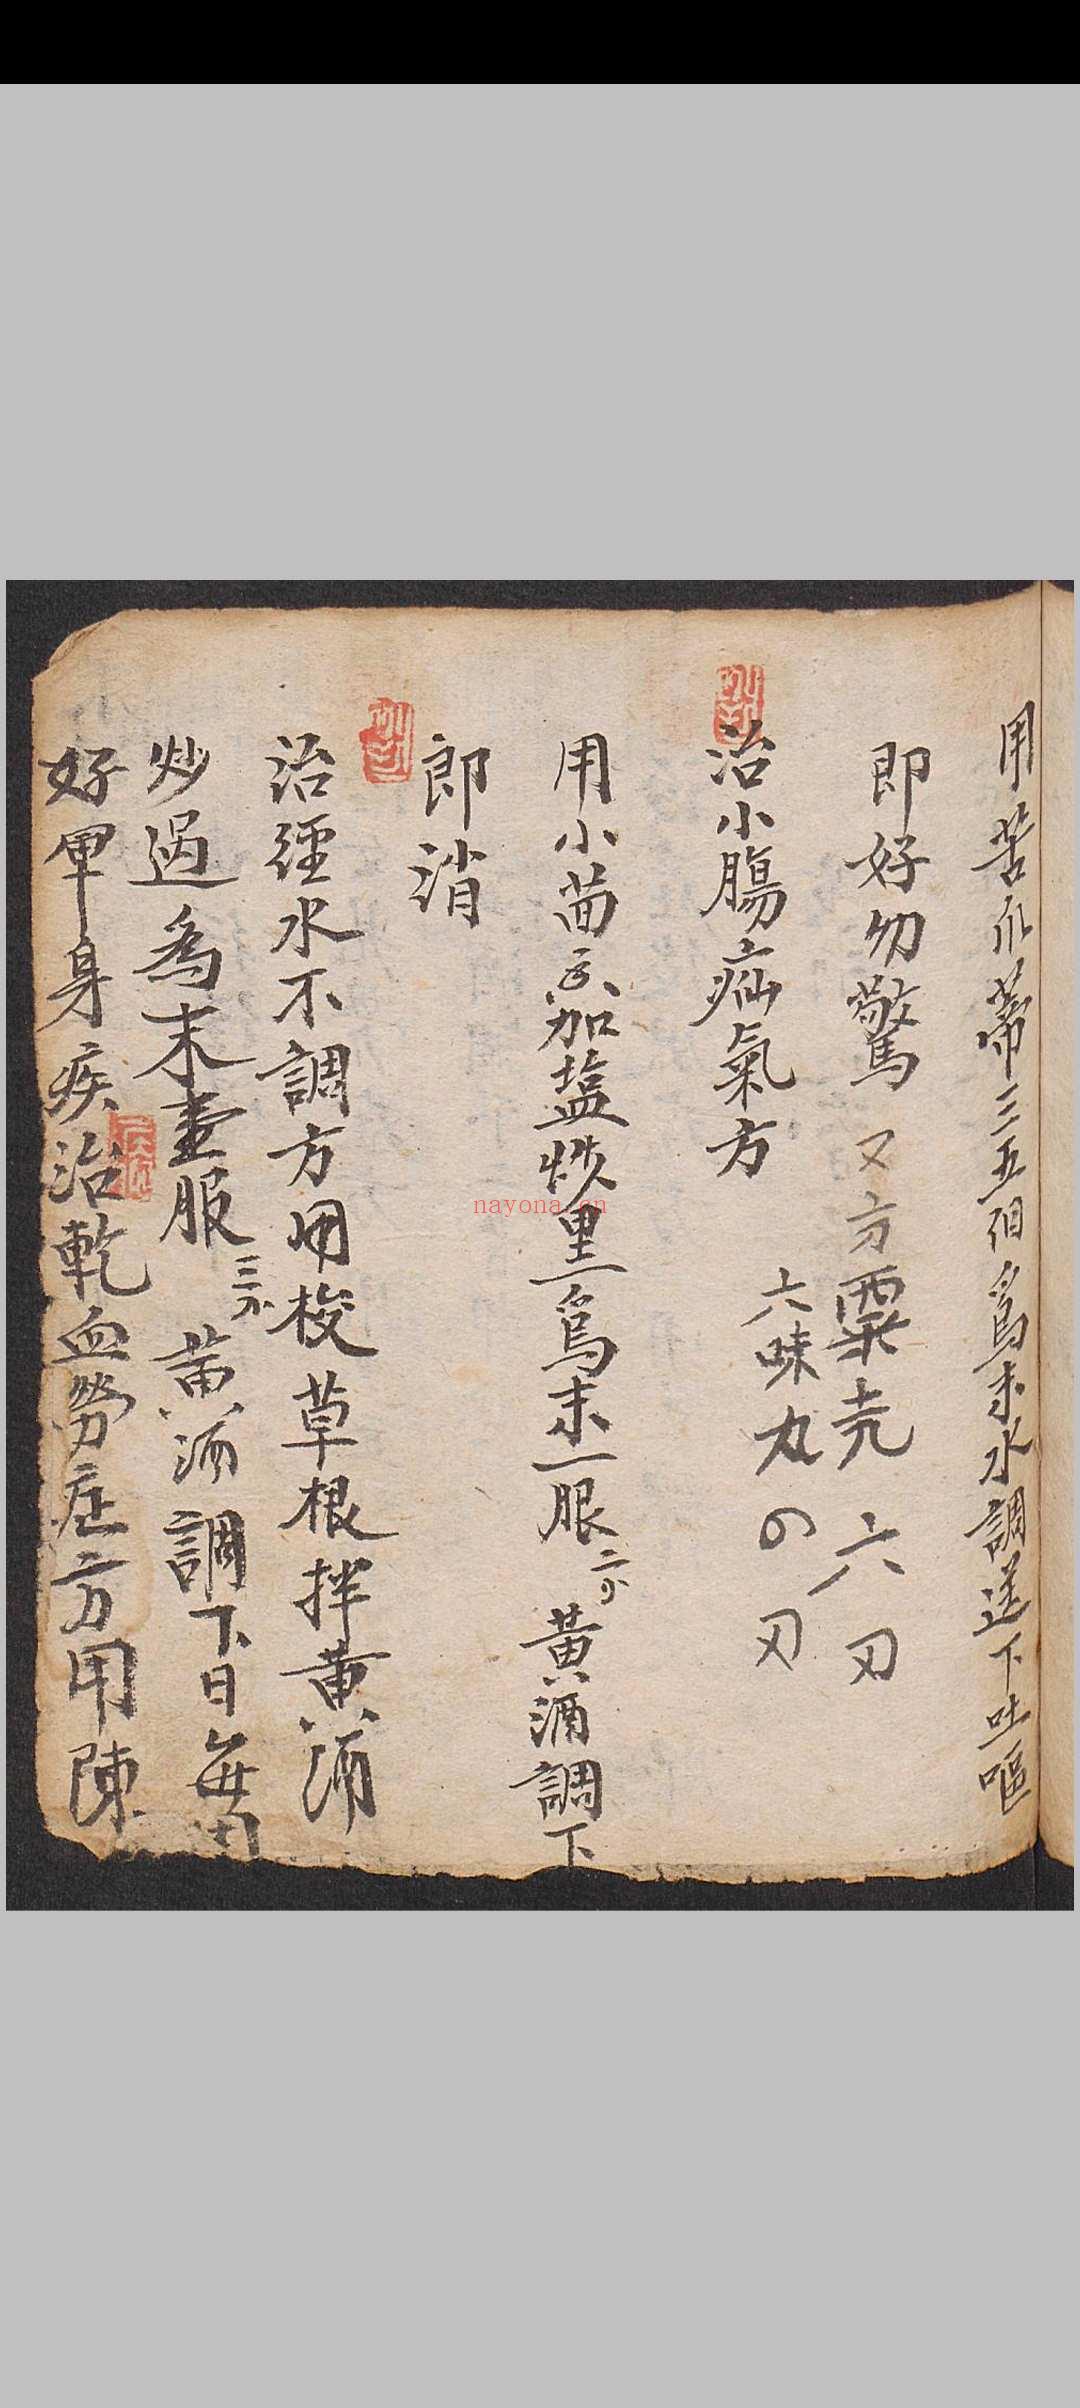 用苦瓜蒂三五個為末水調送下吐嘔
即好勿驚 又方粟壳 六刃
六味丸の刃
治小腸疝氣方
用小茴 加塩炒黑為末一服 黃酒調下
即消
治經水不調方用梭草根拌黃酒
炒過為末壹服 三 黃酒調下日每用
好軍身疾治乾血勞症方用陳
nayona.cn